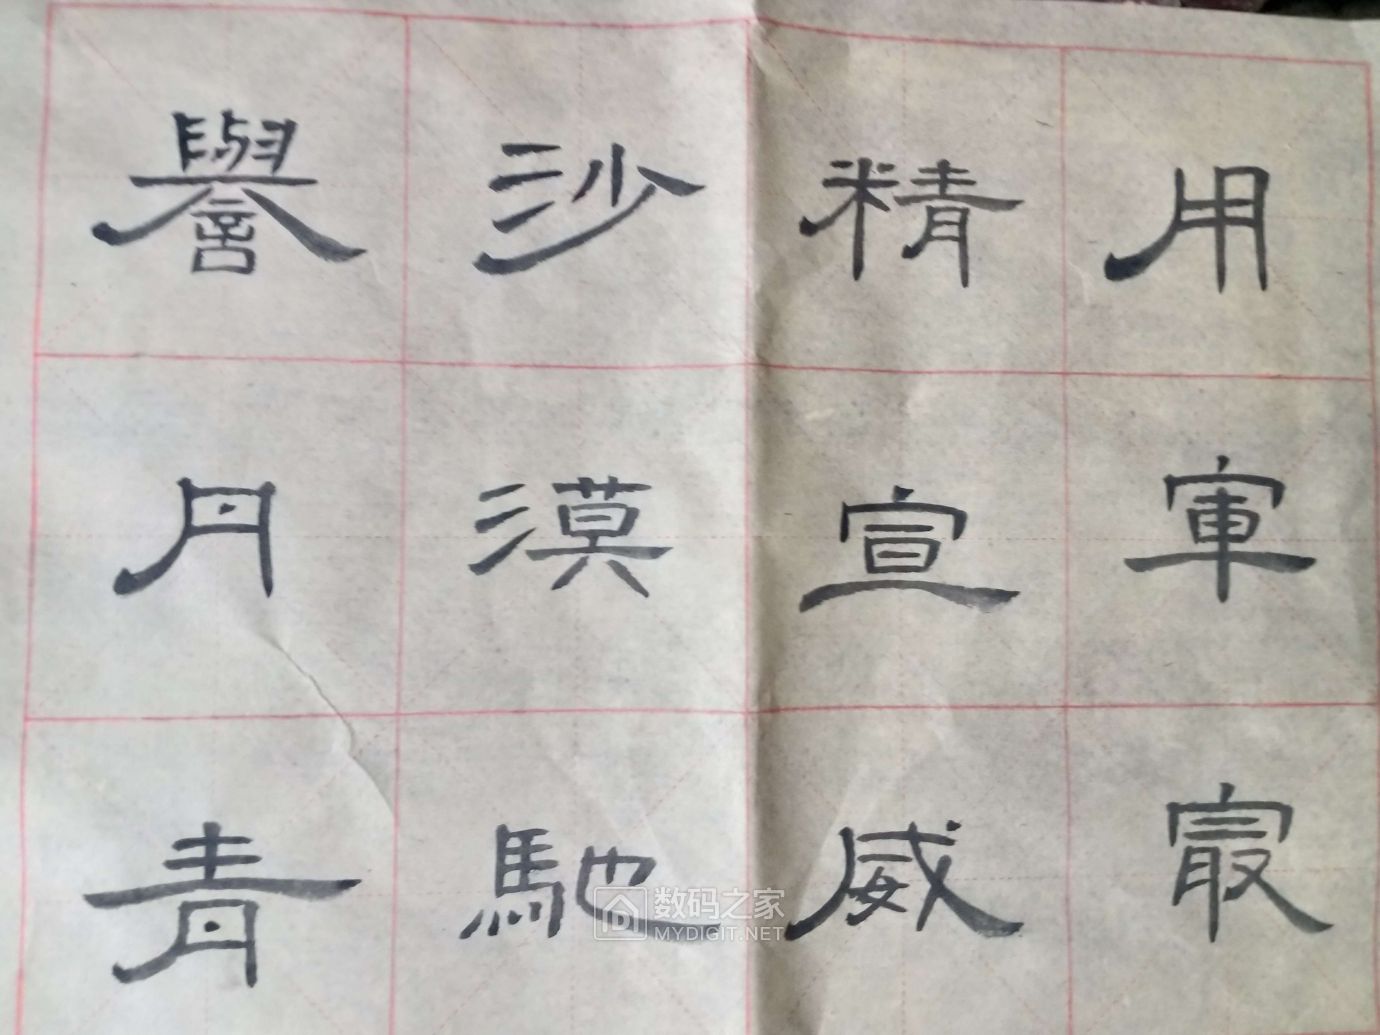 用軍冣
精宣威
沙漠馳
譽丹青
数码之家
MYDIGIT.NET